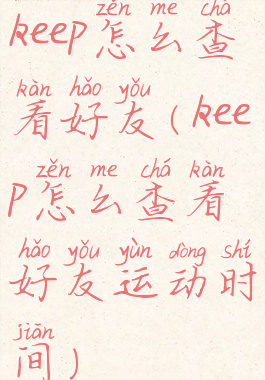 zěn me chá
keep怎么查
kàn hǎo yǒu
看好友(kee
zěn me chá kàn
p怎么查看
hǎo yǒu yùn dòng shí
好友运动时
jiān
间)